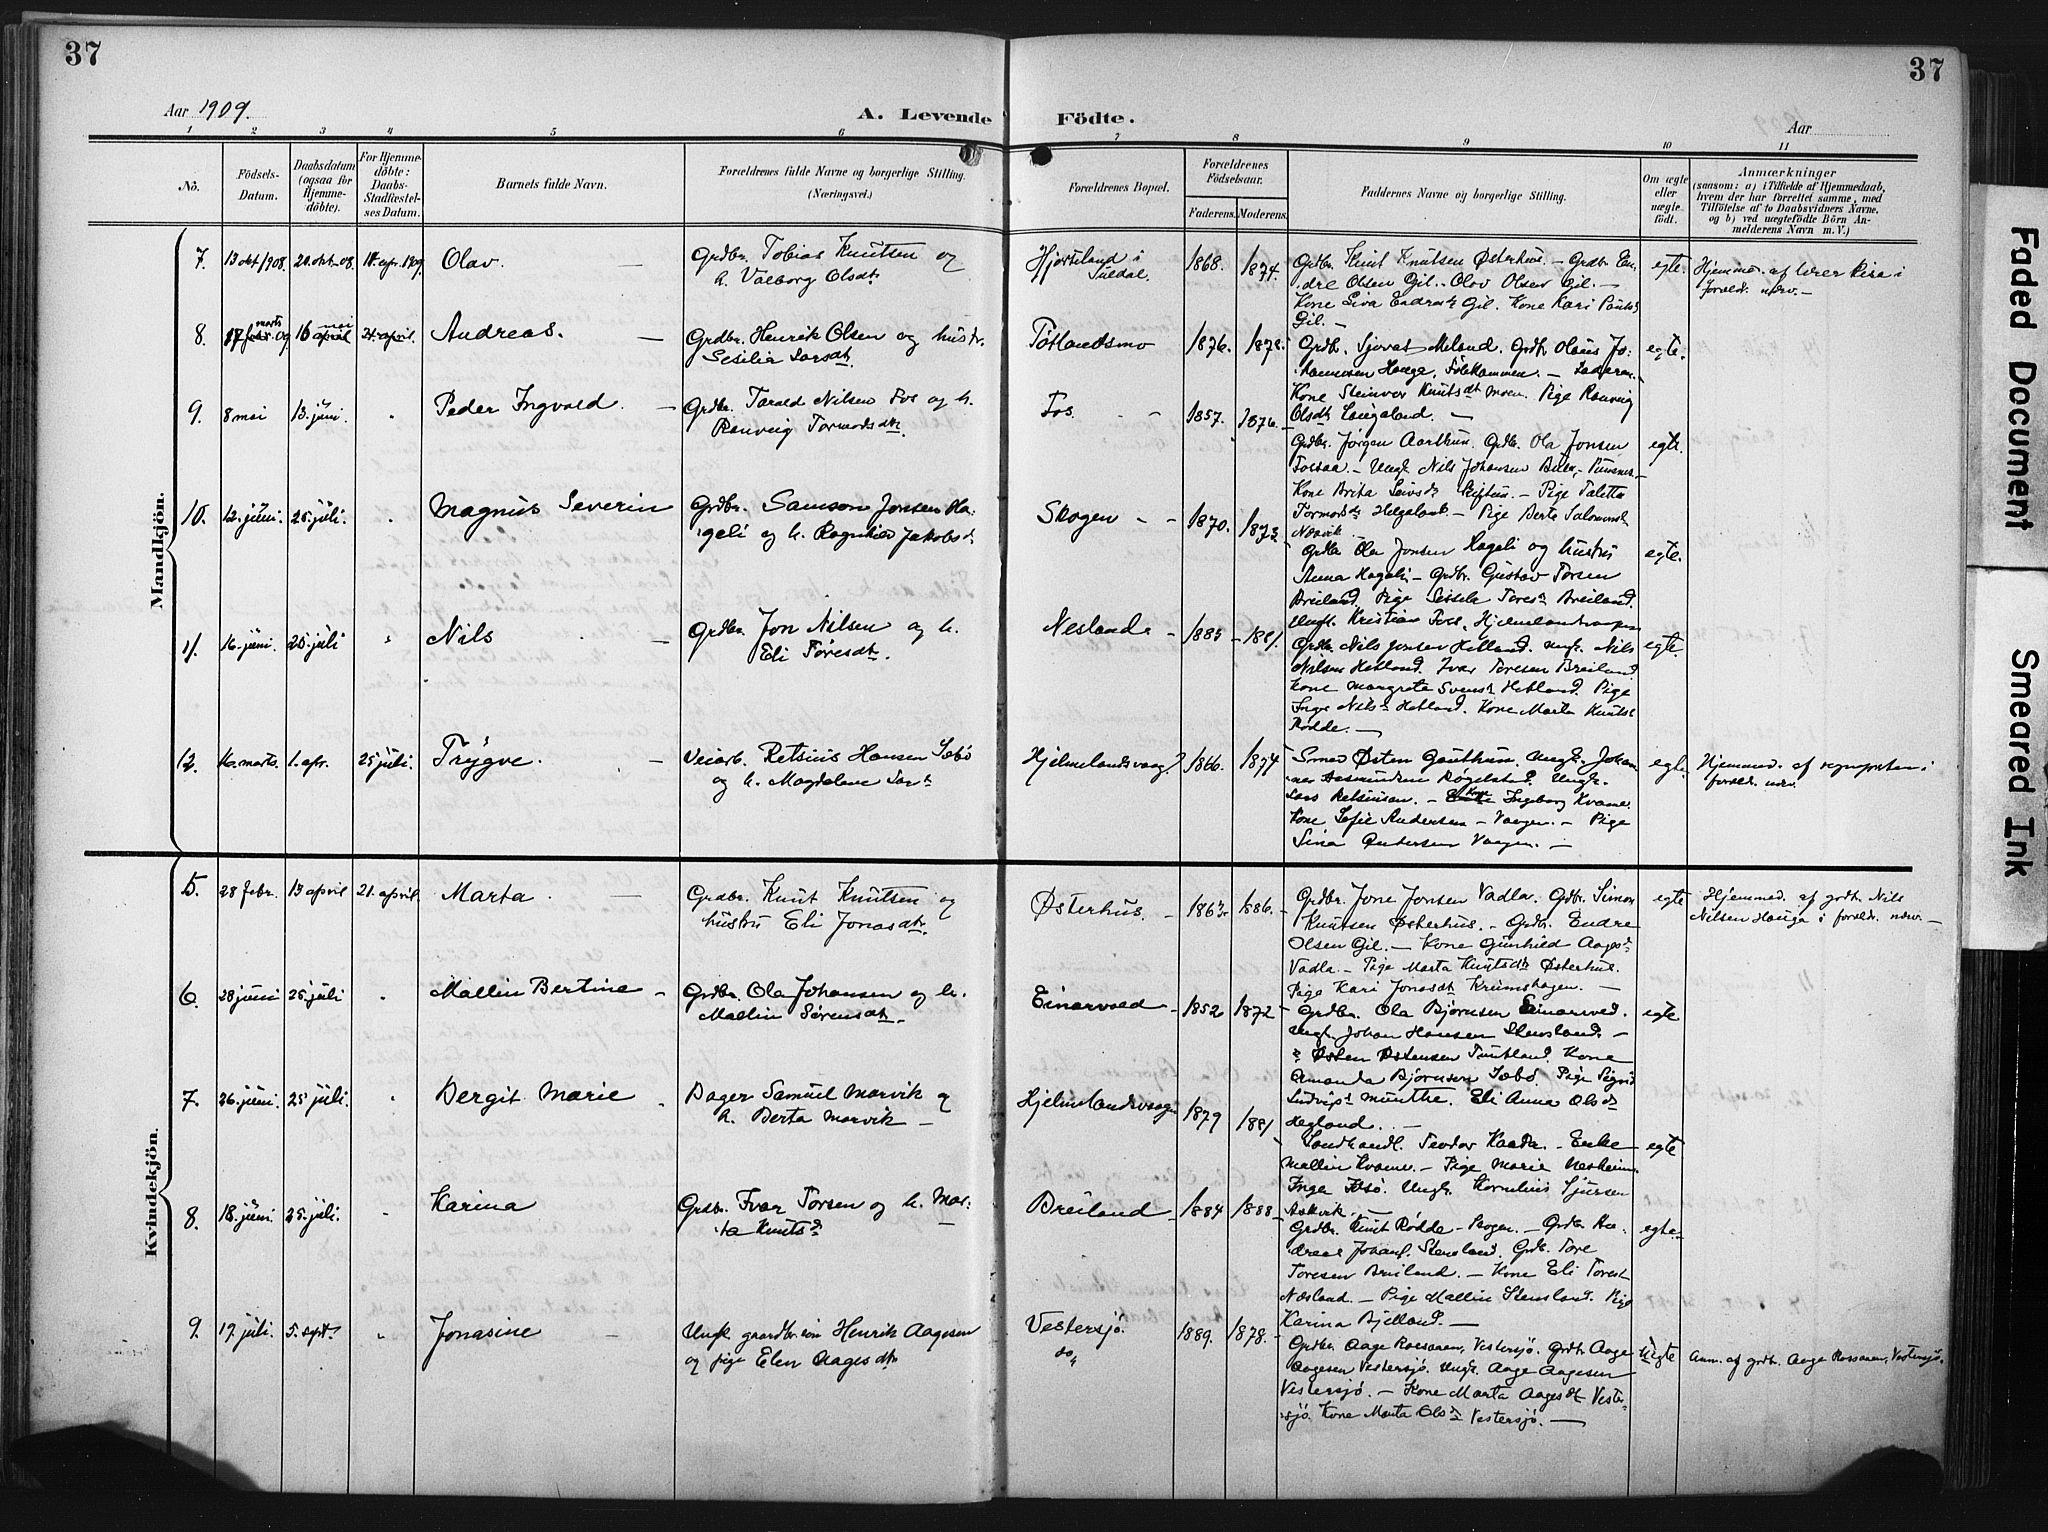 37
37
Aar 1909.
A. Levende Födte.
Aar
1 2 3 4 5 6 7 8 9 10 11
No.
Födsels-Datum.
Daabsdatum (ogsaa for Hjemme-döbte).
For Hjemme-döbte: Daabs-Stadfæstel-ses Datum.
Barnets fulde Navn.
Forældrenes fulde Navne og borgerlige Stilling. (Næringsvei.)
Forældrenes Bopæl.
Forældrenes Födselsaar.
Faderens. Moderens.
Faddernes Navne og borgerlige Stilling.
Om ægte eller uægte födt.
Anmærkninger
(saasom: a) i Tilfælde af Hjemmedaab, hvem der har forrettet samme, med Tilföielse af to Daabsvidners Navne, og b) ved uægtefödte Börn An-melderens Navn m. V.)
Mandkjön.
7. 13 okt 1908. 20. okt. -08. 18. apr. 1909. Olav. —
Grdbr. Tobias Knutsen og
h. Valborg Olsdt.
Hjorteland i
Suldal.
1868. 1874.
Grdbr. Knut Knutsen Østerhus. — Grdbr. En-
dre Olsen Gil. Olov Olsen Gil. —
Kone Siva Endresdt Gil. Kone Kari
Gil. —
egte.
Hjemmed. af lærer i
foreld. nærv. —
8. 17 marts 09 16 mai 24. april. Andreas. —
Grdbr. Henrik Olsen og hustr.
Sesilia Larsdt.
Tøtlandsmo
1876. 1878.
Grdb. Sjovat Meland. Grdb. Olaus Jo-
Hauga,
Kone Steinvor Knutsdt Moen. Pige Ranveig
Olsdt —
egte.
9. 8 mai 13. juni. „ Peder Ingvald. —
Grdbr. Tarald Nilsen Fos og h.
Ranveig Tormodsdtr.
Fos. - -
1857. 1876.
Grdbr. Jørgen Aarthun. Grdb. Ola Jonsen
Fossaa. — Ungk. Nils Johansen
Kone Brita — Pige Taletta
Tormodsdt Helgaland. — Pige Berta
egte.
10. 12. juni. 25. juli. „ Magnus Severin
Grdbr. Samson Jonsen Ha-
geli og h. Ragnhild Jakobsd.
Skogen - -
1870. 1873
Grdbr. Ola Jonsen Hageli og hustru
Anna Hageli — Grdbr. Gustav Torsen
Breiland. Pige Sissele Toresdt Breiland.
Ungk. Kristian Fos,
egte.
11. 16. juni. 25. juli „ Nils —
Grdbr. Jon Nilsen og h.
Eli Toresdt.
Neslands -
1885 - 1881.
Grdbr. Nils Jonsen Hetland. Ungk. Nils
Nilsen Hetland. Ivar Toresen Breiland
Kone Margreta Svensdt Hetland. Pige
Inga Nilsdt Hetland. Kone Marta Knutsdt
Rødde. —
egte.
12. 16. marts. 1. apr. 25 juli. Trygve. —
Veiarb. Retsius Hansen Sæbø
og h. Magdalene Larsdt
Hjelmelandsvaag.
1866. 1874
Smed Østen Gauthun. Ungk. Johan-
nes Ungk.
Lars Retsiusen. — Kone Ingeborg Kvame.
Kone Sofie Andersen — Vaagen. — Pige
Sina Andersen Vaagen. —
egte.
Hjemmed. af i
foreld. nærv.
Kvindekjön.
5. 28 febr. 13 april 21. april. Marta. —
Grdbr. Knut Knutsen og
hustru Eli Jonasdtr.
Østerhus. -
1863. 1886. -
Grdbr. Jone Jonsen Vadla. Grdbr. Simon
Knutsen Østerhus. — Grdbr. Endre
Olsen Gil. — Kone Gunhild Aagesdt
Vadla. — Pige Marta Knutsdt Østerhus.
Pige Kari Jonasdt Krumshagen. —
egte
Hjemmed. af grdb. Nils
Nilsen Hauga i foreld. nærv. —
6. 28 juni 25. juli „ Mallin Bertine -
Grdbr. Ola Johansen og h.
Mallin Sørensdt.
Einarvold -
1852 1872 -
Grdbr. Ola Bjørnsen
Ungk. Johan Hansen Stensland. —
Østen Østensen Kone
Amanda Bjørnsen Sæbø. Pige Sigrid
Ludvigsdt Munthe. Eli Anna Olsdt
Hegland. . —
egte
7. 26. juni. 25 juli. „ Bergit Marie .
Bager Samuel Marvik og
h. Berta Marvik —
Hjelmelandsvaag
1879 1881
Landhandl. Teodor — Enke
Mallin Kvame. — Pige Marie
Inga Ungk. Kornelius Sjursen
Askvik. —
egte
8. 18. juni. 25. juli. „ Karina
Grdbr. Ivar Torsen og h. Mar-
ta Knutsdt
Breiland -
1884 1888 -
Grdbr. Knut Rødde - Skogen. — Grdbr. An-
dreas Johans. Stensland. Grdb. Tore
Toresen Breiland. — Kone Eli Toresdt
Nesland. — Pige Mallin Stensland. Pige
Karina Bjelland. —
egte.
9. 19. juli. 5. sept. „ Jonasine —
Ungk. gaardbr.søn Henrik Aagesen
og pige Elen Aagesdtr
Vestersjø.
do„
1889. 1878. -
Grdbr. Aage Rasmusen, Vestersjø. Grdb. Aage
Aagesen Vestersjø. Ungk. Aage Aagesen
Vestersjø. — Kone Marta Aagesdt Vester-
sjø. Kone Marta Olsdt Vestersjø. —
uegte
Anm. af grdb. Aage Rasmusen, Vestersjø.
Faded Document
Smeared Ink